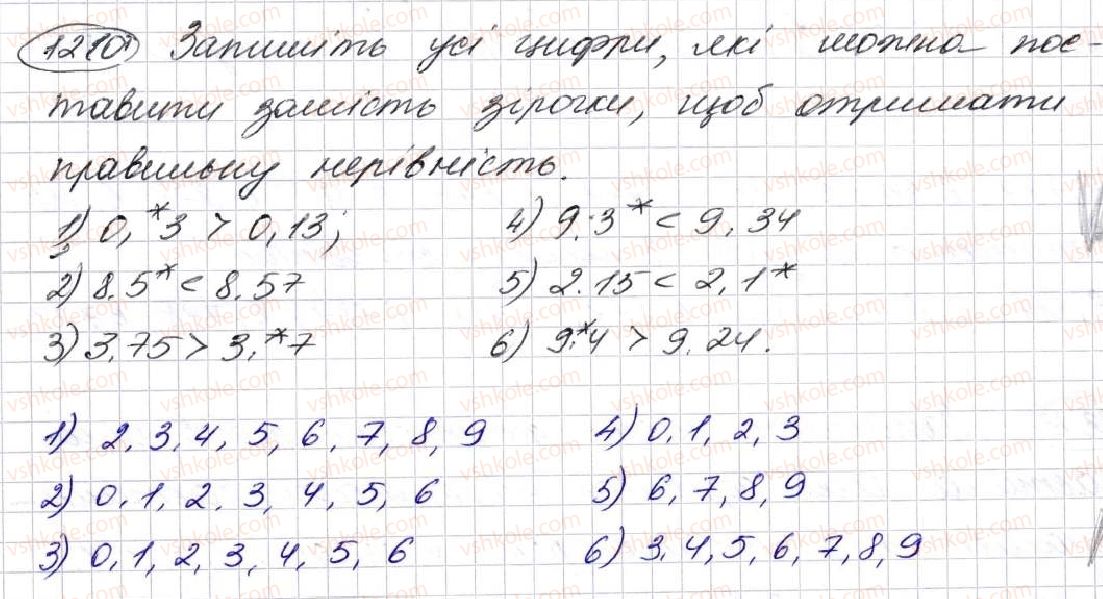 1210) Запишіть усі цифри, які можна пос-
тавити замість зірочки, щоб отримати
правильну нерівність.
1) 0,*3 > 0,13;
4) 9.3* < 9,34
2) 8.5* < 8.57
5) 2.15 < 2,1*
3) 3,75 > 3,*7
6) 9.*4 > 9.24.
1) 2, 3, 4, 5, 6, 7, 8, 9
4) 0, 1, 2, 3
2) 0, 1, 2, 3, 4, 5, 6
5) 6, 7, 8, 9
3) 0, 1, 2, 3, 4, 5, 6
6) 3, 4, 5, 6, 7, 8, 9
vshkole.com